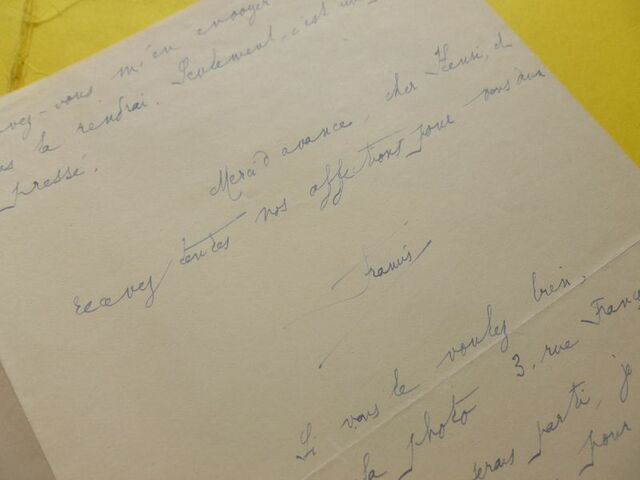 vez-vous m'en envoyer
la rendrai. Seulement, c'est un
pressé.
Merci d'avance, cher Henri, et
recevez toutes nos affections pour vous deux
Francis
Si vous le voulez bien,
la photo 3, rue Franç
serais parti, je
pour